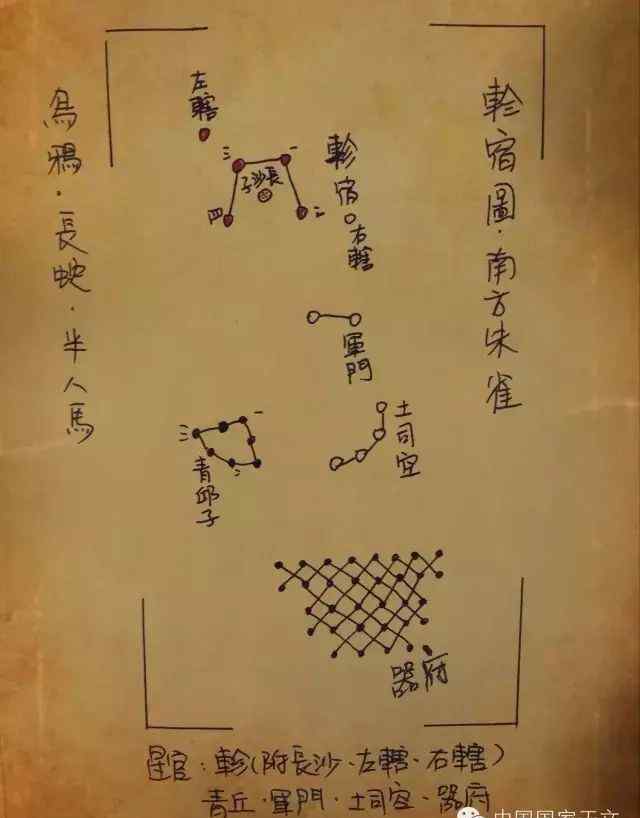 軫宿圖·南方朱雀
烏鴉·長蛇·半人馬
左轄
三
一
長沙子
四
二
軫宿
右轄
軍門
土司空
一
三
二
青邱子
器府
星官：軫(附長沙·左轄·右轄)
青丘·軍門·土司空·器府
中国国家天文